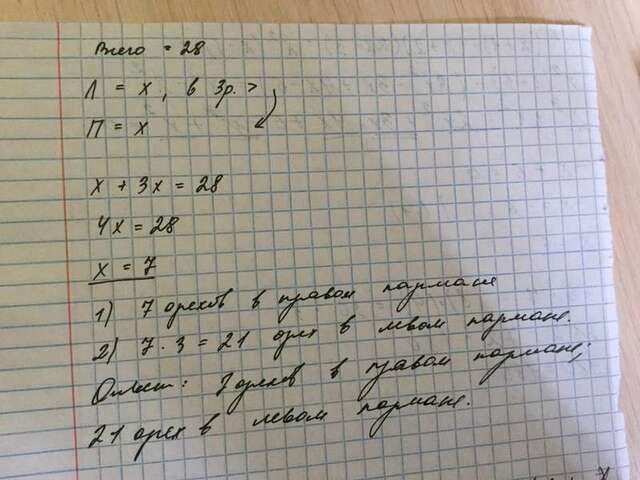 Всего = 28
Л = х, в 3р. >
П = х
х + 3х = 28
4х = 28
х = 7
1) 7 орехов в правом кармане
2) 7 · 3 = 21 орех в левом кармане.
Ответ: 7 орехов в правом кармане;
21 орех в левом кармане.